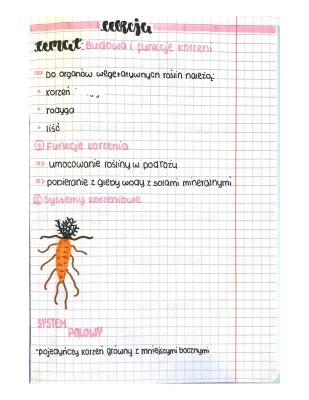 Lekcja
Temat: Budowa i funkcje korzeni
=> Do organów wegetatywnych roślin należą:
• korzeń
• łodyga
• liść
① Funkcje korzenia
=> umocowanie rośliny w podłożu
=> pobieranie z gleby wody z solami mineralnymi
② Systemy korzeniowe
SYSTEM
PALOWY
•pojedyńczy korzeń główny z mniejszymi bocznymi